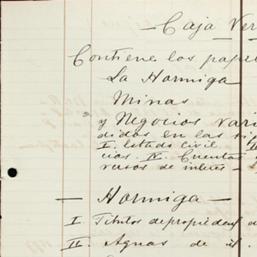 — Caja Ver
Contiene los papel
La Hormiga
Minas
y Negocios vari
didos en las sig
I. Estado civil. II
cios. IV. Cuentas
versos de interes —
— Hormiga —
I Titulos de propiedad d
II. Aguas de id.